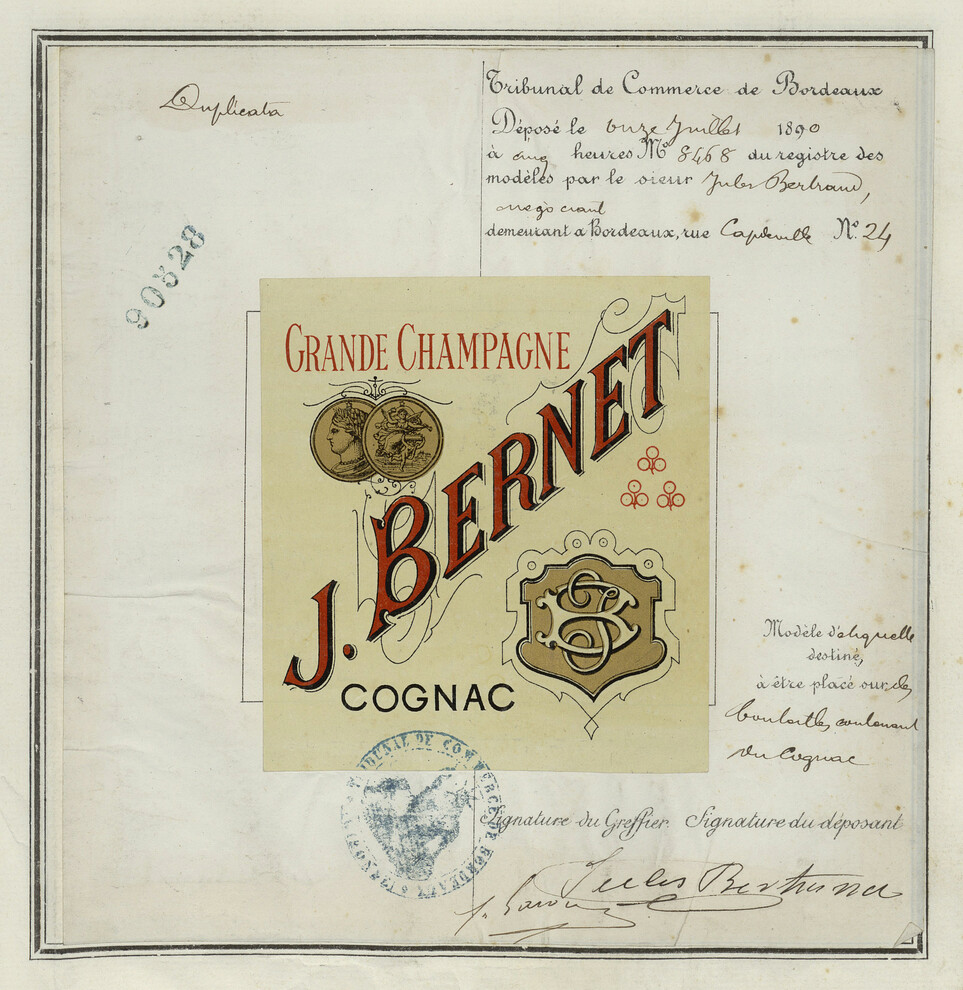 Duplicata
Tribunal de Commerce de Bordeaux
Déposé le onze Juillet 1890
à cinq heures Nº 8468 du registre des
modèles par le sieur Jules Bertrand,
négociant
demeurant a Bordeaux, rue Capdeville Nº 24
90528
GRANDE CHAMPAGNE
J. BERNET
COGNAC
JB
Modèle d'etiquette
destiné,
à être placé sur des
bouteilles contenant
du Cognac
TRIBUNAL DE COMMERCE DE BORDEAUX
Signature du Greffier. Signature du déposant
Jules Bertrand